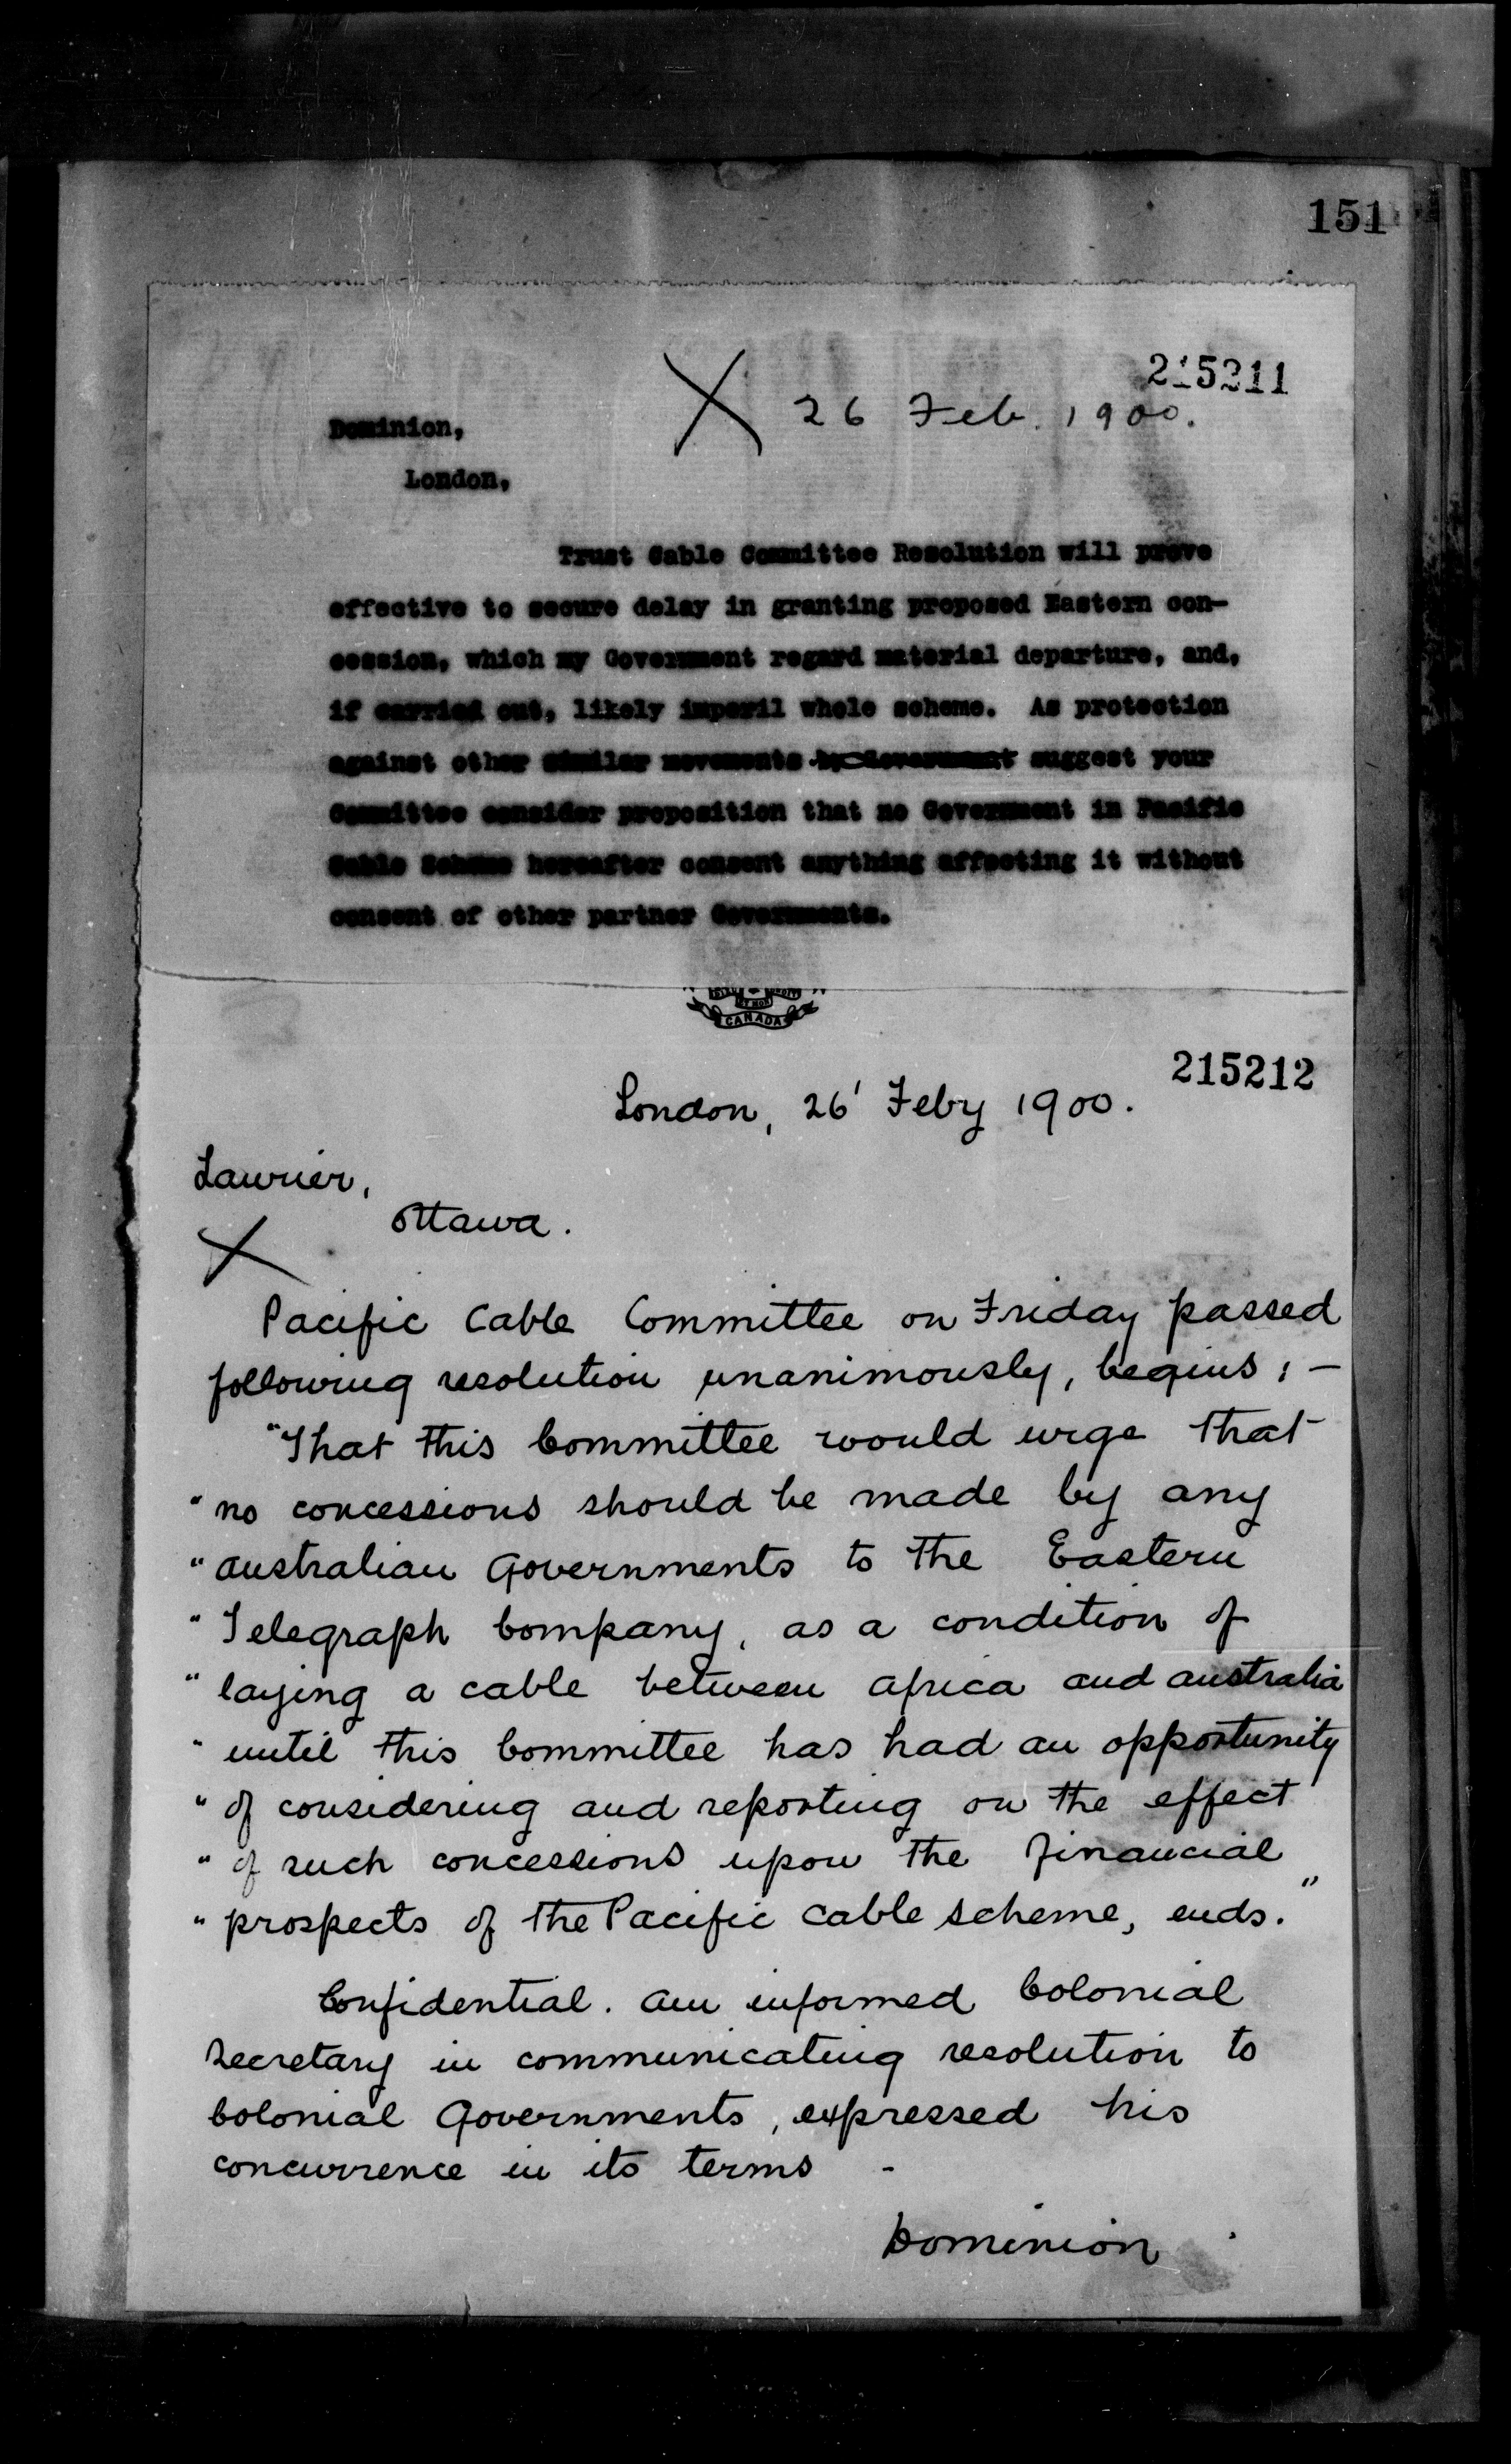 151
215211
X 26 Feb. 1900.
Dominion,
London,
Trust Cable Committee Resolution will prove
effective to secure delay in granting proposed Eastern con-
cession, which my Government regard material departure, and,
if carried out, likely imperil whole scheme. As protection
against other similar movements by Government suggest your
Committee consider proposition that no Government in Pacific
Cable Scheme hereafter consent anything affecting it without
consent of other partner Governments.
CANADA
215212
London, 26' Feby 1900.
Laurier,
Ottawa.
X
Pacific Cable Committee on Friday passed
following resolution unanimously, begins; -
"That this Committee would urge that
"no concessions should be made by any
"Australian Governments to the Eastern
"Telegraph Company, as a condition of
"laying a cable between Africa and Australia
"until this Committee has had an opportunity
"of considering and reporting on the effect
"of such concessions upon the financial
"prospects of the Pacific Cable scheme, ends."
Confidential. Am informed Colonial
Secretary in communicating resolution to
Colonial Governments, expressed his
concurrence in its terms -
Dominion.